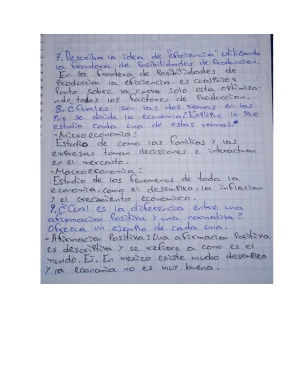 7. Describa la idea de Eficiencia utilizando
la frontera de Posibilidades de Produccion.
En la frontera de Posibilidades de
Produccion la eficiencia es cualquier
Punto sobre la curva solo esta optimiza-
ndo todos los factores de Produccion.
8. ¿Cuales son las dos ramas en las
que se divide la economia? Explique lo que
estudia cada una de estas ramas.
-Microeconomia:
Estudio de como las familias y las
empresas toman decisiones e interactuan
en el mercado.
-Macroeconomia:
Estudio de los fenomenos de toda la
economia, como el desempleo, la inflacion
y el crecimiento economico.
9. ¿Cual es la diferencia entre una
afirmacion Positiva y una normativa?
Ofrezca un ejemplo de cada una.
-Afirmacion Positiva: Una afirmacion Positiva
es descriptiva y se refiere a como es el
mundo. Ej. En mexico existe mucho desempleo
y la economia no es muy buena.